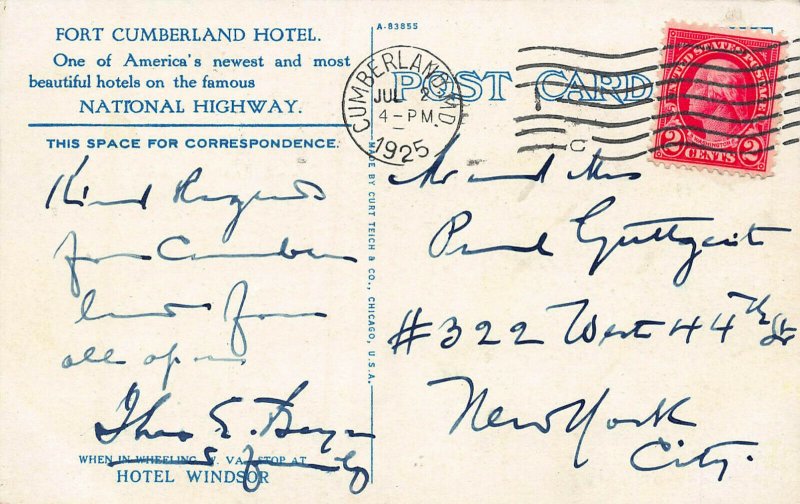 FORT CUMBERLAND HOTEL.
One of America's newest and most
beautiful hotels on the famous
NATIONAL HIGHWAY.
THIS SPACE FOR CORRESPONDENCE.
Kind Regards
from Cumber
land from
all of us
Theo E.
& family
WHEN IN WHEELING, W. VA. STOP AT
HOTEL WINDSOR
A-83855
MADE BY CURT TEICH & CO., CHICAGO, U.S.A.
POST CARD
CUMBERLAND, MD.
JUL 2
4-PM.
1925
UNITED STATES POSTAGE
WASHINGTON
2 CENTS 2
Mr and Mrs
Paul Guttzeit
#322 West 44th St
New York
City.